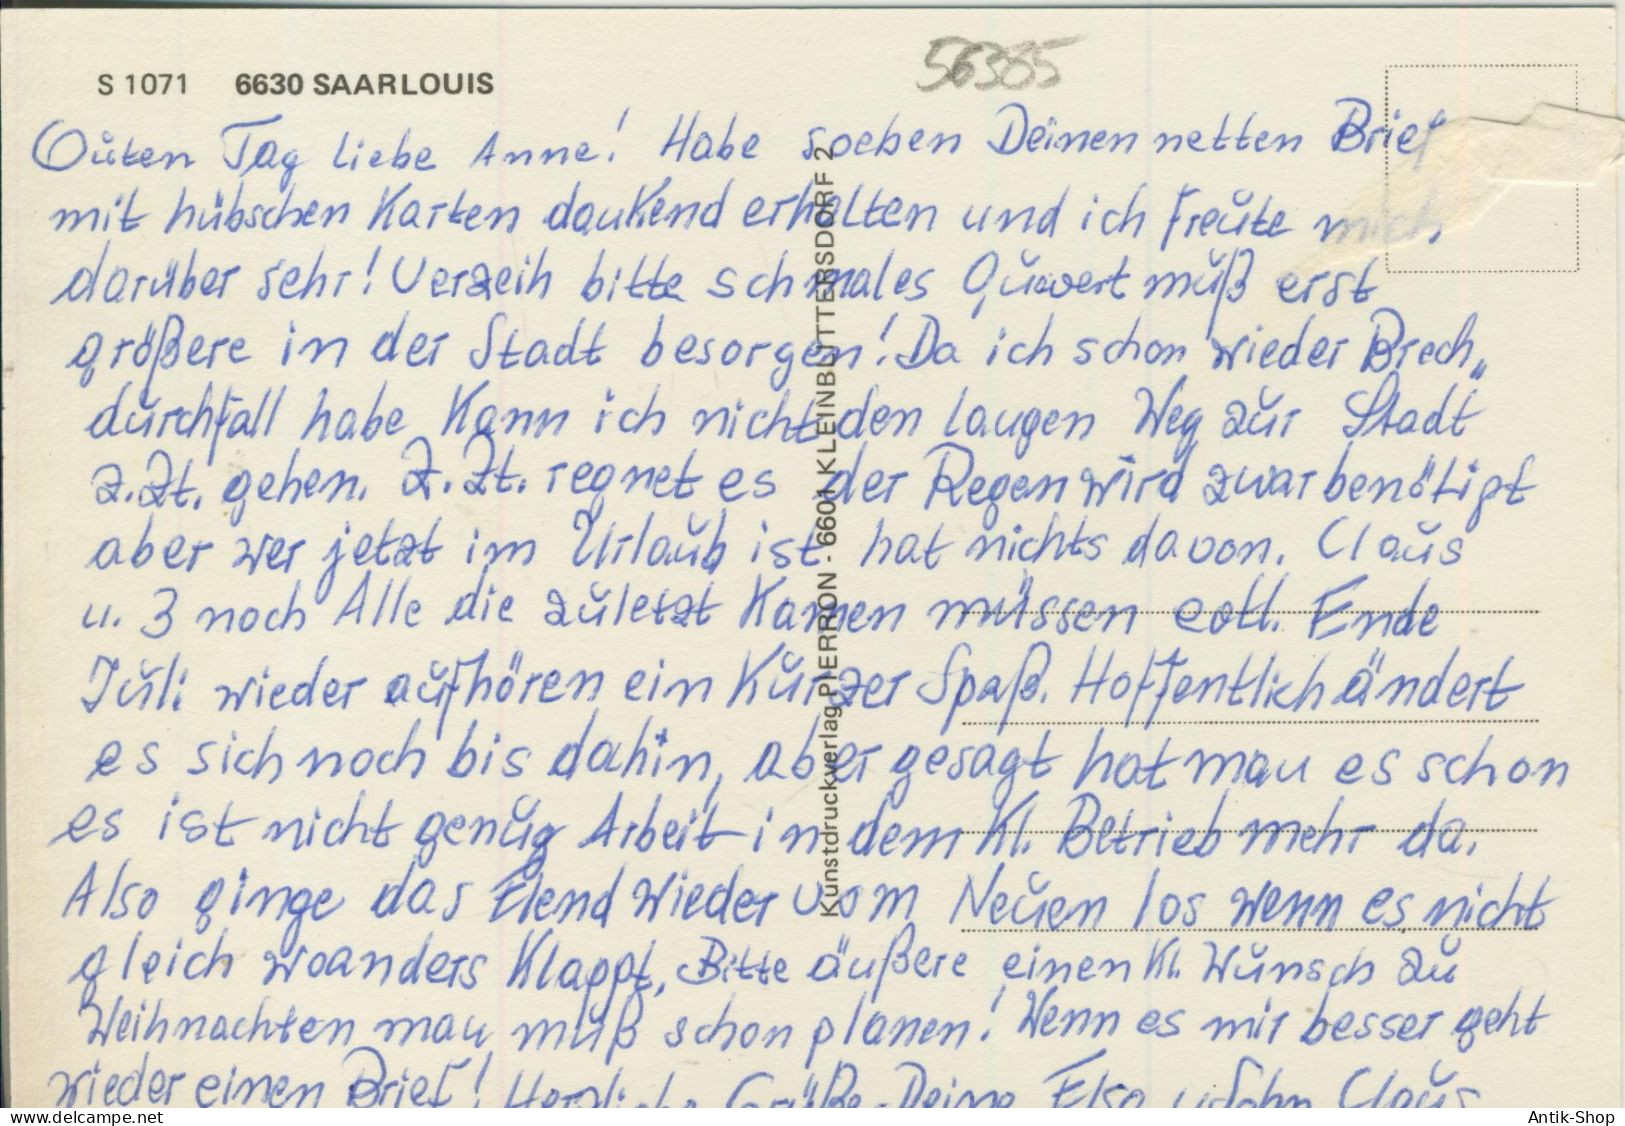 56385
S 1071 6630 SAARLOUIS
Guten Tag liebe Anne! Habe soeben Deinen netten Brief
mit hübschen Karten dankend erhalten und ich freute mich
darüber sehr! Verzeih bitte schmales Quwert muß erst
größere in der Stadt besorgen! Da ich schon wieder Brech„
durchfall habe Kann ich nicht den langen Weg zur Stadt
z.Zt. gehen. Z.Zt. regnet es der Regen wird zwar benötigt
aber wer jetzt im Urlaub ist hat nichts davon. Claus
u. 3 noch Alle die zuletzt Kamen müssen evtl. Ende
Juli wieder aufhören ein Kurzer Spaß. Hoffentlich ändert
es sich noch bis dahin, aber gesagt hat man es schon
es ist nicht genug Arbeit in dem Kl. Betrieb mehr da.
Also ginge das Elend wieder vom Neuen los wenn es nicht
gleich woanders Klappt, Bitte äußere einen Kl. Wunsch zu
Weihnachten man muß schon planen! Wenn es mir besser geht
wieder einen Brief! Herzliche Grüße Deine Elso u. Sohn Claus
Kunstdruckverlag PIERRON - 6601 KLEINBLITTERSDORF 2
www.delcampe.net
Antik-Shop